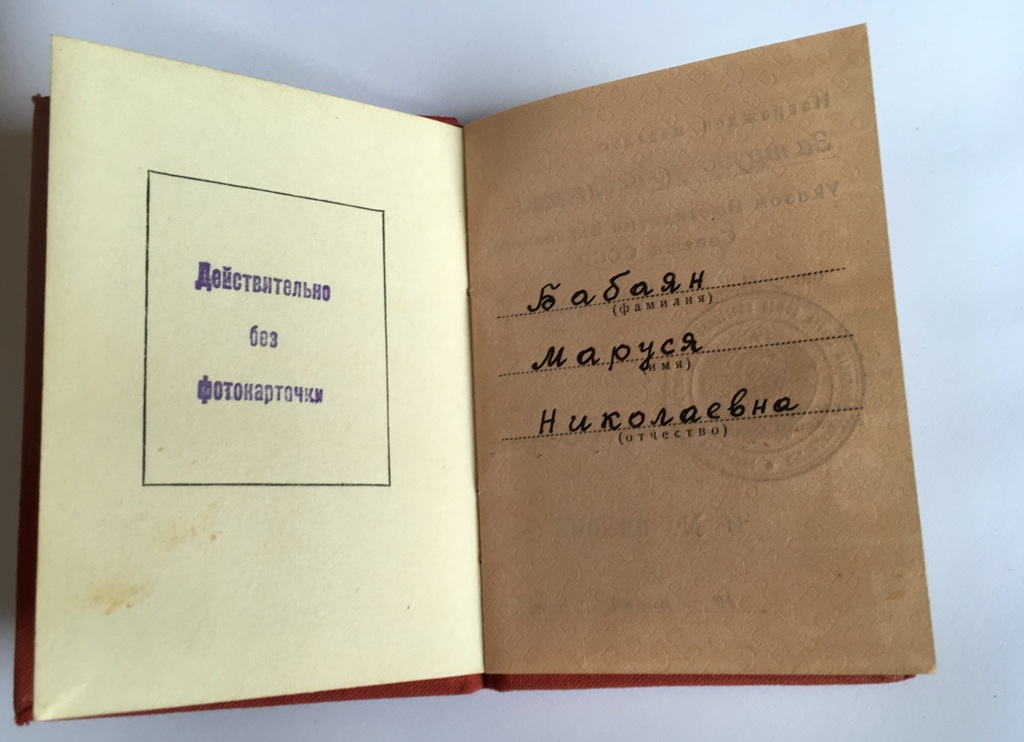 Действительно
без
фотокарточки
Бабаян
(фамилия)
Маруся
(имя)
Николаевна
(отчество)